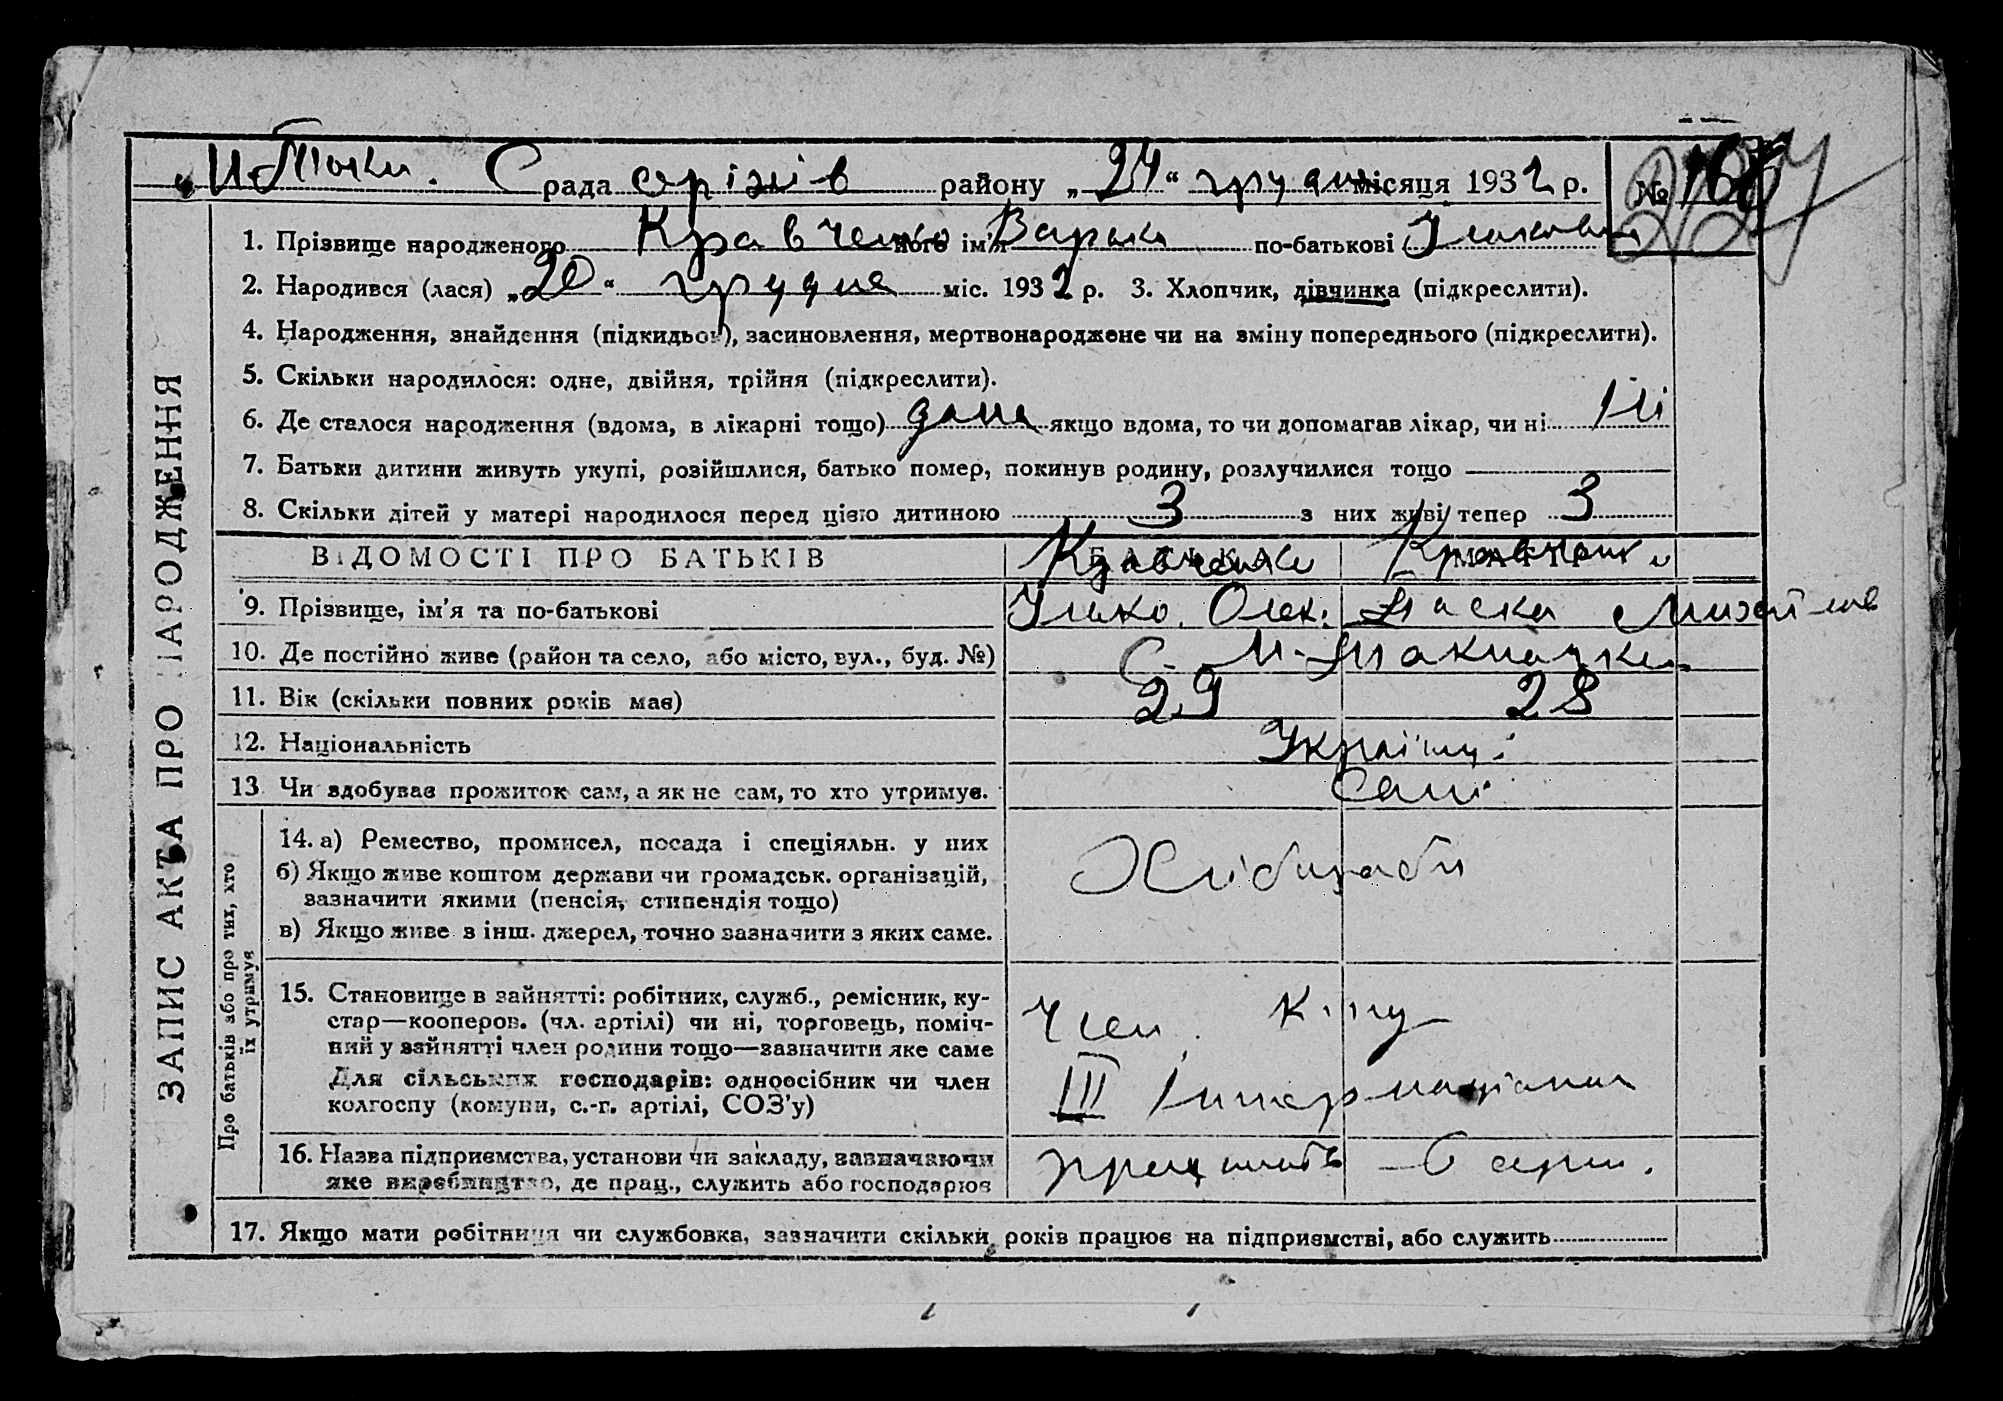 рада району „24“ місяця 1932 р. №
1. Прізвище народженого Кравченко його ім'я Варька по-батькові
2. Народився (лася) „20“ грудня міс. 1932 р. 3. Хлопчик, дівчинка (підкреслити).
4. Народження, знайдення (підкидьок), засиновлення, мертвонароджене чи на зміну попереднього (підкреслити).
5. Скільки народилося: одне, двійня, трійня (підкреслити).
6. Де сталося народження (вдома, в лікарні тощо) дома якщо вдома, то чи допомагав лікар, чи ні ні
7. Батьки дитини живуть укупі, розійшлися, батько помер, покинув родину, розлучилися тощо
8. Скільки дітей у матері народилося перед цією дитиною 3 з них живі тепер 3
ВІДОМОСТІ ПРО БАТЬКІВ БАТЬКА МАТІР
Кравченко Кравченко
9. Прізвище, ім'я та по-батькові Олек. Параска
10. Де постійно живе (район та село, або місто, вул., буд. №) С.
11. Вік (скільки повних років має) 29 28
12. Національність Українці
13. Чи здобував прожиток сам, а як не сам, то хто утримує. Самі
ЗАПИС АКТА ПРО НАРОДЖЕННЯ
Про батьків або про тих, хто їх утримує
14. а) Ремество, промисел, посада і спеціяльн. у них
б) Якщо живе коштом держави чи громадськ. організацій,
зазначити якими (пенсія, стипендія тощо)
в) Якщо живе з інш. джерел, точно зазначити з яких саме.
Хлібороби
15. Становище в зайнятті: робітник, служб., ремісник, ку-
стар—кооперов. (чл. артілі) чи ні, торговець, поміч-
ний у зайнятті член родини тощо—зазначити яке саме
Для сільських господарів: одноосібник чи член
колгоспу (комуни, с.-г. артілі, СОЗ'у)
Член
III Інтернаціонал
16. Назва підприємства, установи чи закладу, зазначаючи
яке виробництво, де прац., служить або господарює
працюють
17. Якщо мати робітниця чи службовка, зазначити скільки років працює на підприємстві, або служить